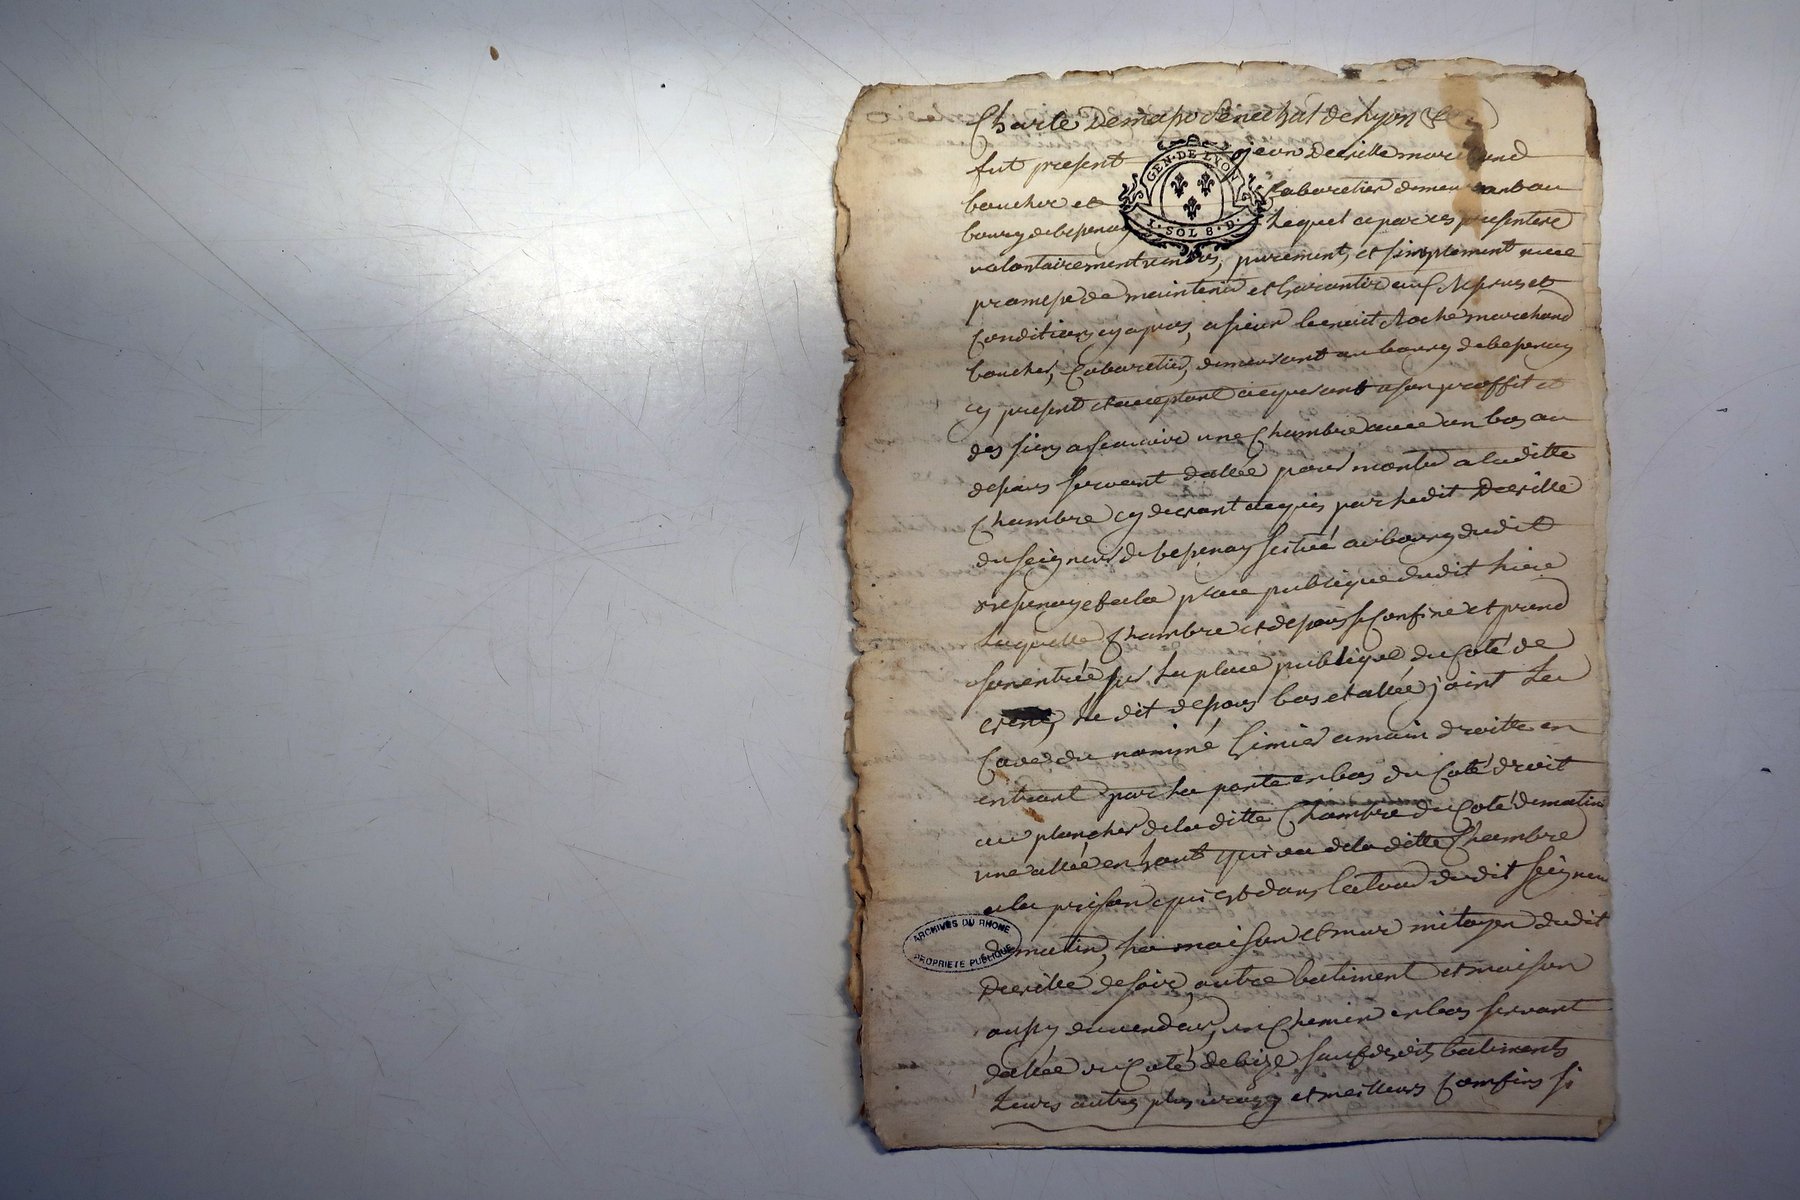 Charle Demaso Senechal de Lyon
GEN · DE LYON
SOL 8 · D ·
fut present jean Deville marchand
boucher et Cabaretier demeurant au
bourg de bessenay Lequel a par ces presentes
volontairement vendus, purement, et simplement avec
promesse de maintenir et Garantir aux Clapses et
Conditions cy apres, a sieur benoit Roche marchand
boucher, Cabaretier, demeurant au bourg de bessenay
cy present et acceptant acquerant a son proffit et
des siens a scavoir une Chambre avec un bas au
desous servant dallée pour monter a la ditte
Chambre cy devant acquis par Ledit Deville
du seigneur de bessenay scitué au bourg dudit
bessenay et sur la place publique dudit Lieu
Laquelle Chambre et desous se Confine et prend
son entrée sur La place publique du Coté de
vent, Le dit desous bas et allée joint La
Cave du nommé Limier a main droitte en
entrant par La porte en bas du Coté droit
au plancher de la ditte Chambre du Coté de matin
une allée en haut qui va de la ditte Chambre
a la prison qui est dans la tour du dit seigneur
de matin, La maison et mur mitoyen dudit
Deville de soir, autre batiment et maison
aussy du vendeur, un Chemin en bas servant
dallée du Coté de bize sauf desdits batiments
Leurs autres plus vrays et meilleurs Confins si
ARCHIVES DU RHONE
PROPRIETE PUBLIQUE